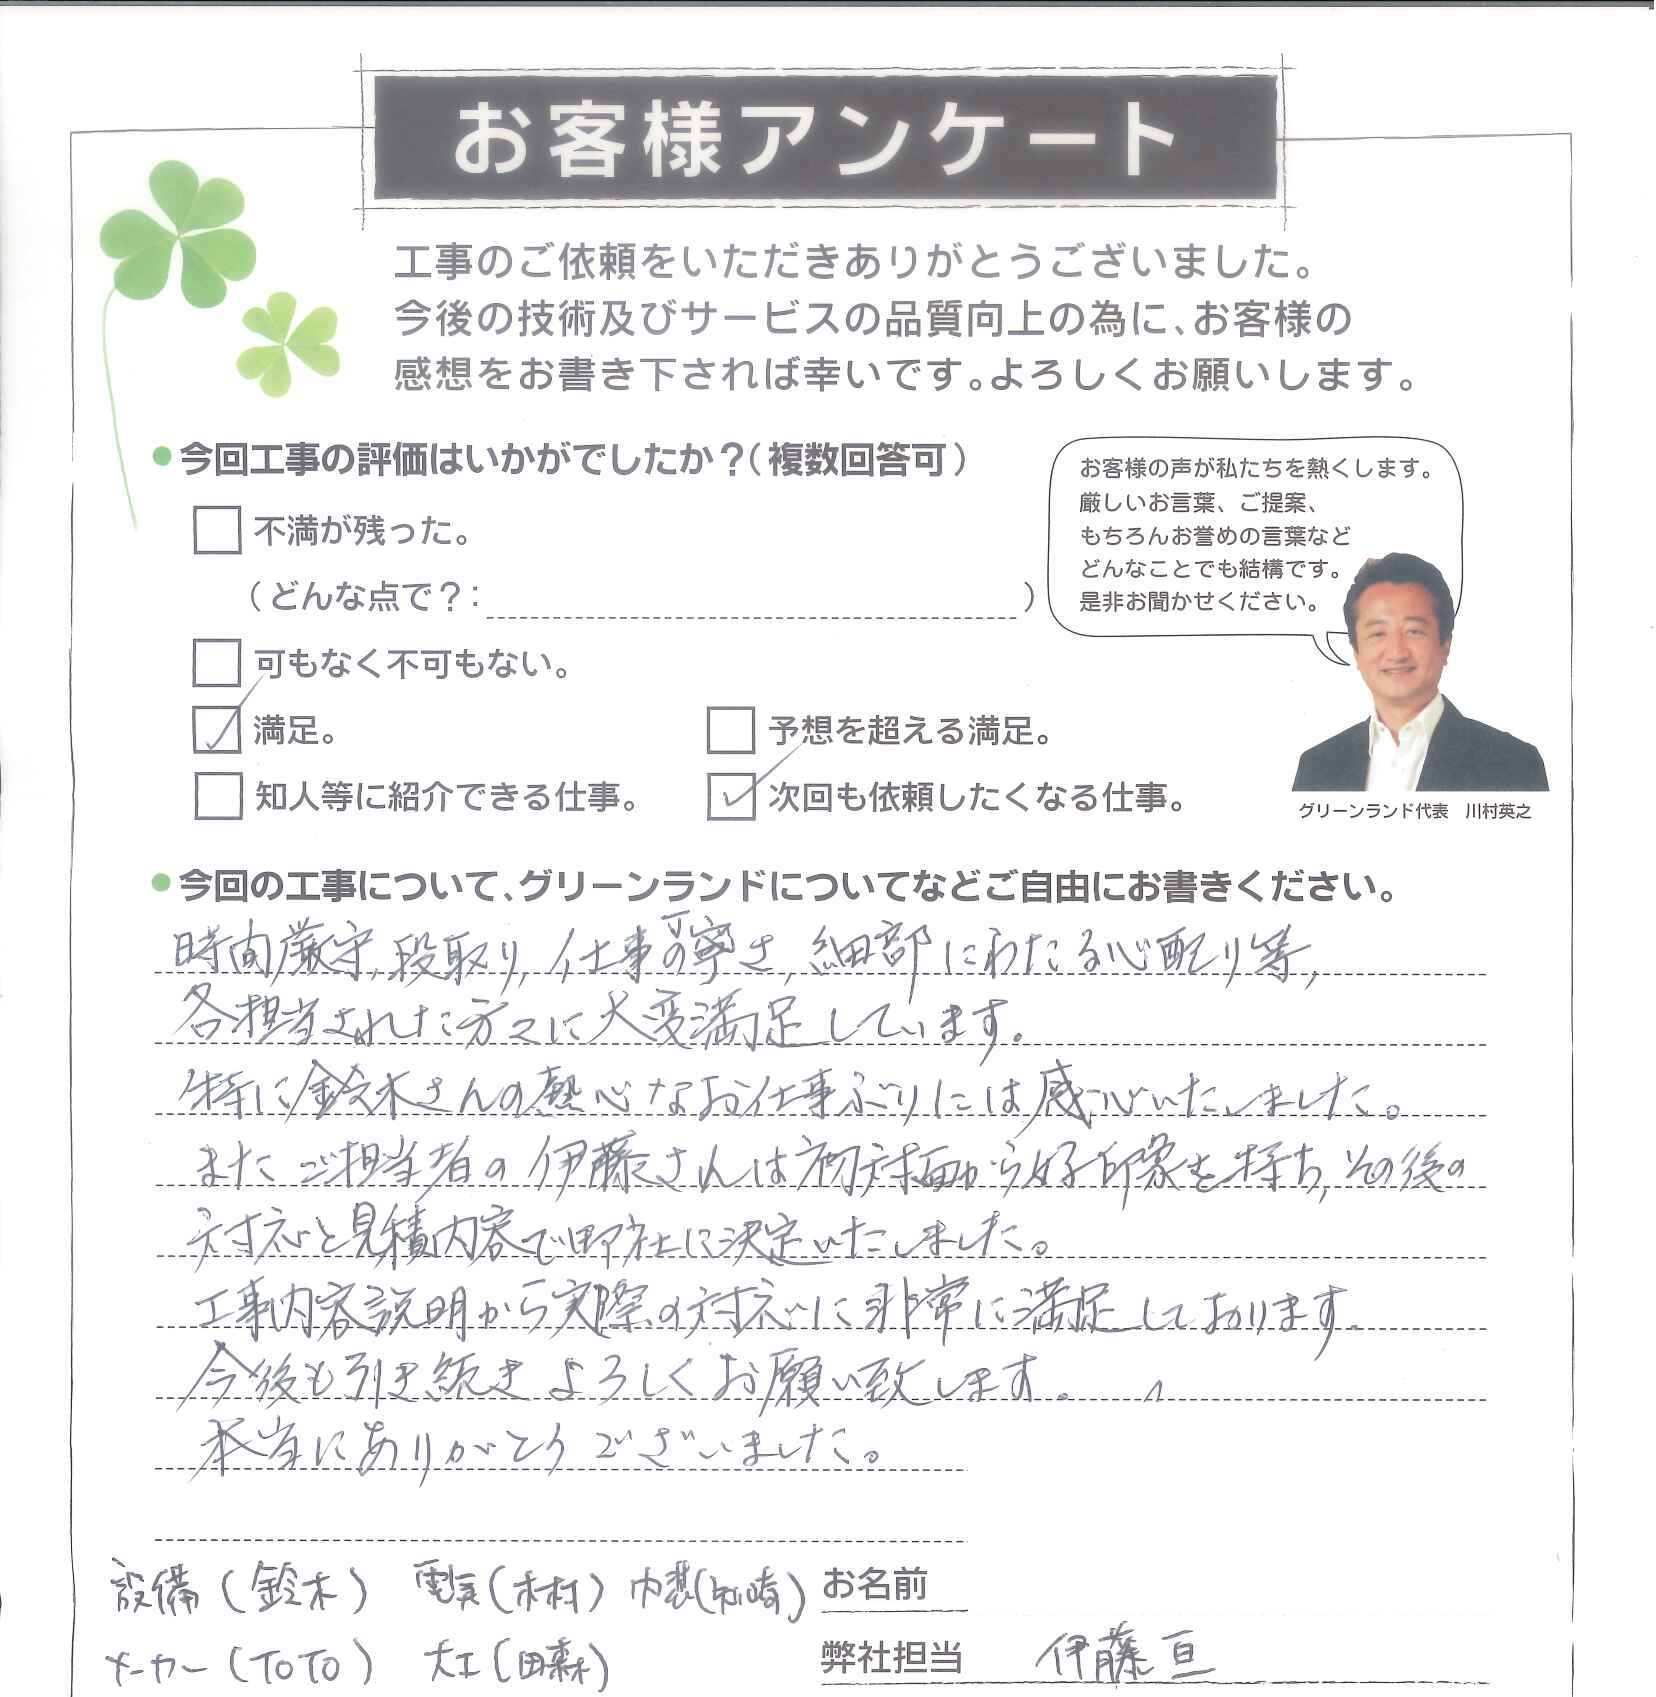 お客様アンケート
工事のご依頼をいただきありがとうございました。
今後の技術及びサービスの品質向上の為に、お客様の
感想をお書き下されば幸いです。よろしくお願いします。
今回工事の評価はいかがでしたか？（複数回答可）
不満が残った。
（どんな点で？： ）
可もなく不可もない。
満足。
予想を超える満足。
知人等に紹介できる仕事。
次回も依頼したくなる仕事。
お客様の声が私たちを熱くします。
厳しいお言葉、ご提案、
もちろんお誉めの言葉など
どんなことでも結構です。
是非お聞かせください。
グリーンランド代表　川村英之
今回の工事について、グリーンランドについてなどご自由にお書きください。
時間厳守, 段取り, 仕事の丁寧さ, 細部にわたる心配り等,
各担当された方々に大変満足しています。
特に鈴木さんの熱心なお仕事ぶりには感心いたしました。
またご担当者の伊藤さんは初対面から好印象を持ち, その後の
対応と見積内容で御社に決定いたしました。
工事内容説明から実際の対応に非常に満足しております。
今後も引き続きよろしくお願い致します。
本当にありがとうございました。
設備（鈴木） 電気（木村） 内装（ 崎）
メーカー（TOTO） 大工（田森）
お名前
弊社担当 伊藤 亘